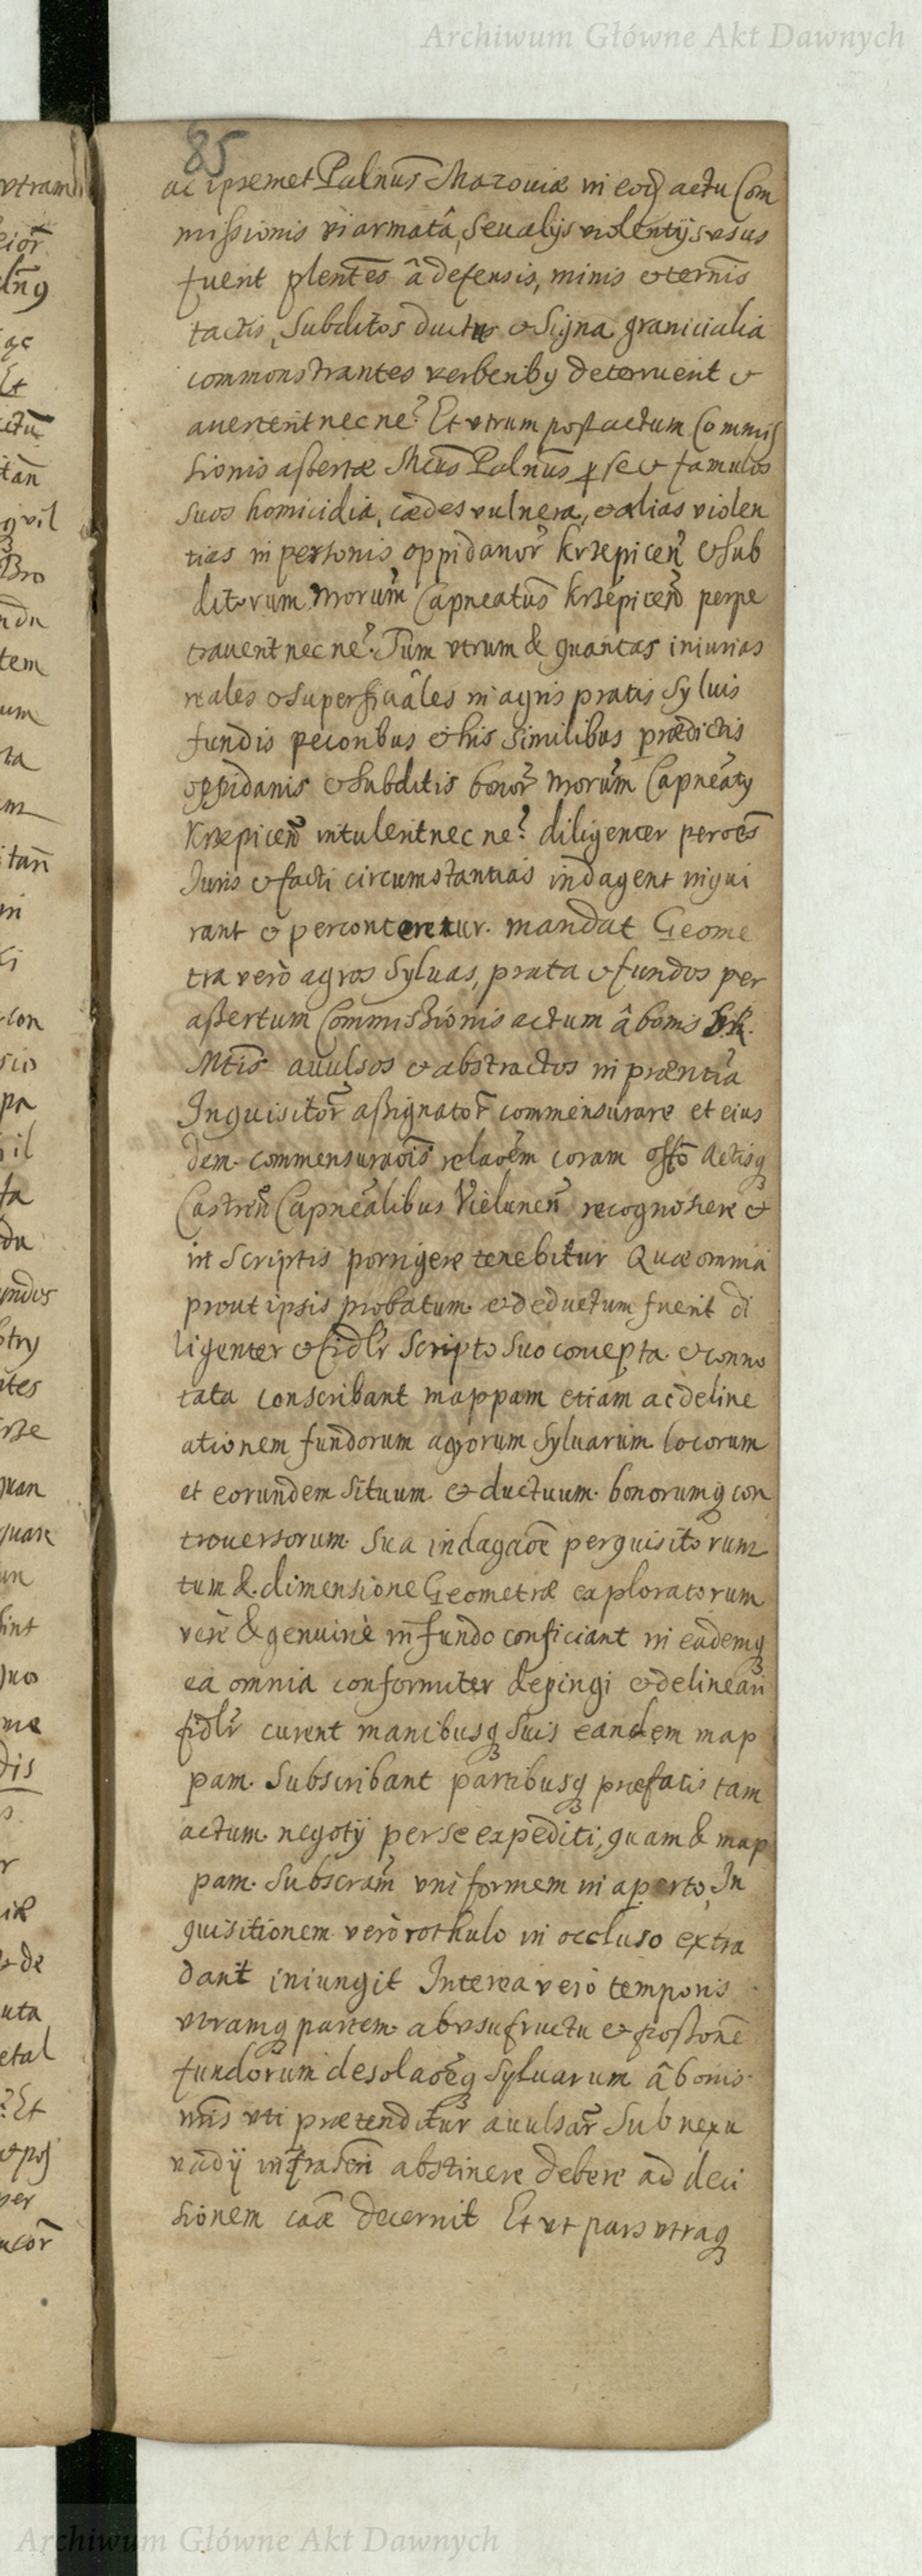 Archiwum Główne Akt Dawnych
85
ac ipsemet Palnūs Mazouiæ in eoq actu Com
missionis vi armatâ, seu alijs violentijs usus
fuerit plentēs â defensis, minis & terrnīs
tactis, Subditos ductus & Signa granicialia
commonstrantes verberibq deteruerit &
auerterit nec ne? Et vtrum post actum Commis
sionis assertæ Mcūs Palnūs p se & famulos
suos homicidia, cædes vulnera, & alias violen
tias in personis oppidanor̃ krzepiceñ & sub
ditorum nrorum̃ Capneatūs krzépiceñ perpe
trauerit nec ne? Tum vtrum & quantas iniurias
reales & superficiâles in agris pratis syluis
fundis pecoribus & his similibus prædictis
oppidanis & subditis bonor̃ nrorum̃ Capnẽatq
Krzepiceñ intulerit nec ne? diligenter per oēs
Iuris & facti circumstantias indagent inqui
rant & percontentur. mandat Geome
tra verò agros Syluas, prata & fundos per
assertum Commissionis actum â bonis
Mtīs auulsos & abstractos in præntiā
Inquisitor̃ assignator̃ commensurare et eius
dem commensuraōis relaōem coram offō Actisq
Castreñ Capnẽalibus Vieluneñ recognoscere &
in Scriptis porrigere tenebitur Quæ omnia
prout ipsis probatum & deductum fuerit di
ligenter & fidlr̃ Scripto Suo concepta & conno
tata conscribant mappam etiam ac deline
ationem fundorum agrorum Syluarum locorum
et eorundem Situum & ductuum bonorumq con
trouersorum Sua indagaōe perquisitorum
tum & dimensione Geometræ exploratorum
verè & genuinè in fundo conficiant in eademq
ea omnia conformiter depingi & delineari
fidlr̃ curent manibusq suis eandem map
pam Subscribant partibusq præfatis tam
actum negotij per se expediti, quam & map
pam Subscram̃ vniformem in aperto, In
quisitionem verò rothulo in occluso extra
dant iniungit Interea verò temporis
vtramq partem ab vsufructu & possōne
fundorum desolaōeq Syluarum â bonis
nrīs vti prætenditur auulsar̃ Sub nexu
vadij infrascrī abstinere debere ad deci
sionem caæ decernit Et vt pars vtraq
Archiwum Główne Akt Dawnych